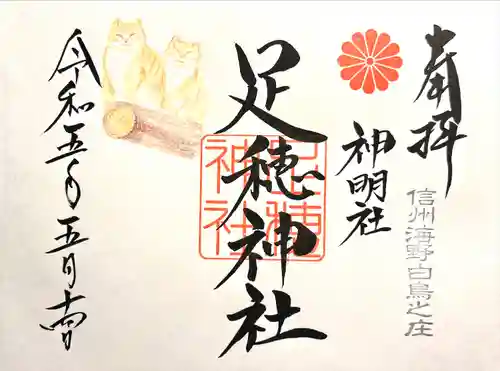 奉拝
信州海野白鳥之庄
神明社
足穂神社
足穂神社
令和五年五月十四日